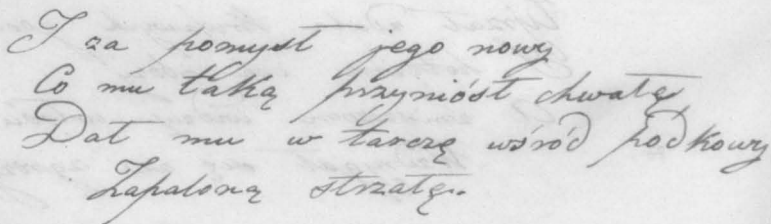 I za pomysł jego nowy
Co mu taką przyniósł chwałę,
Dał mu w tarczę wśród podkowy
Zapaloną strzałę.